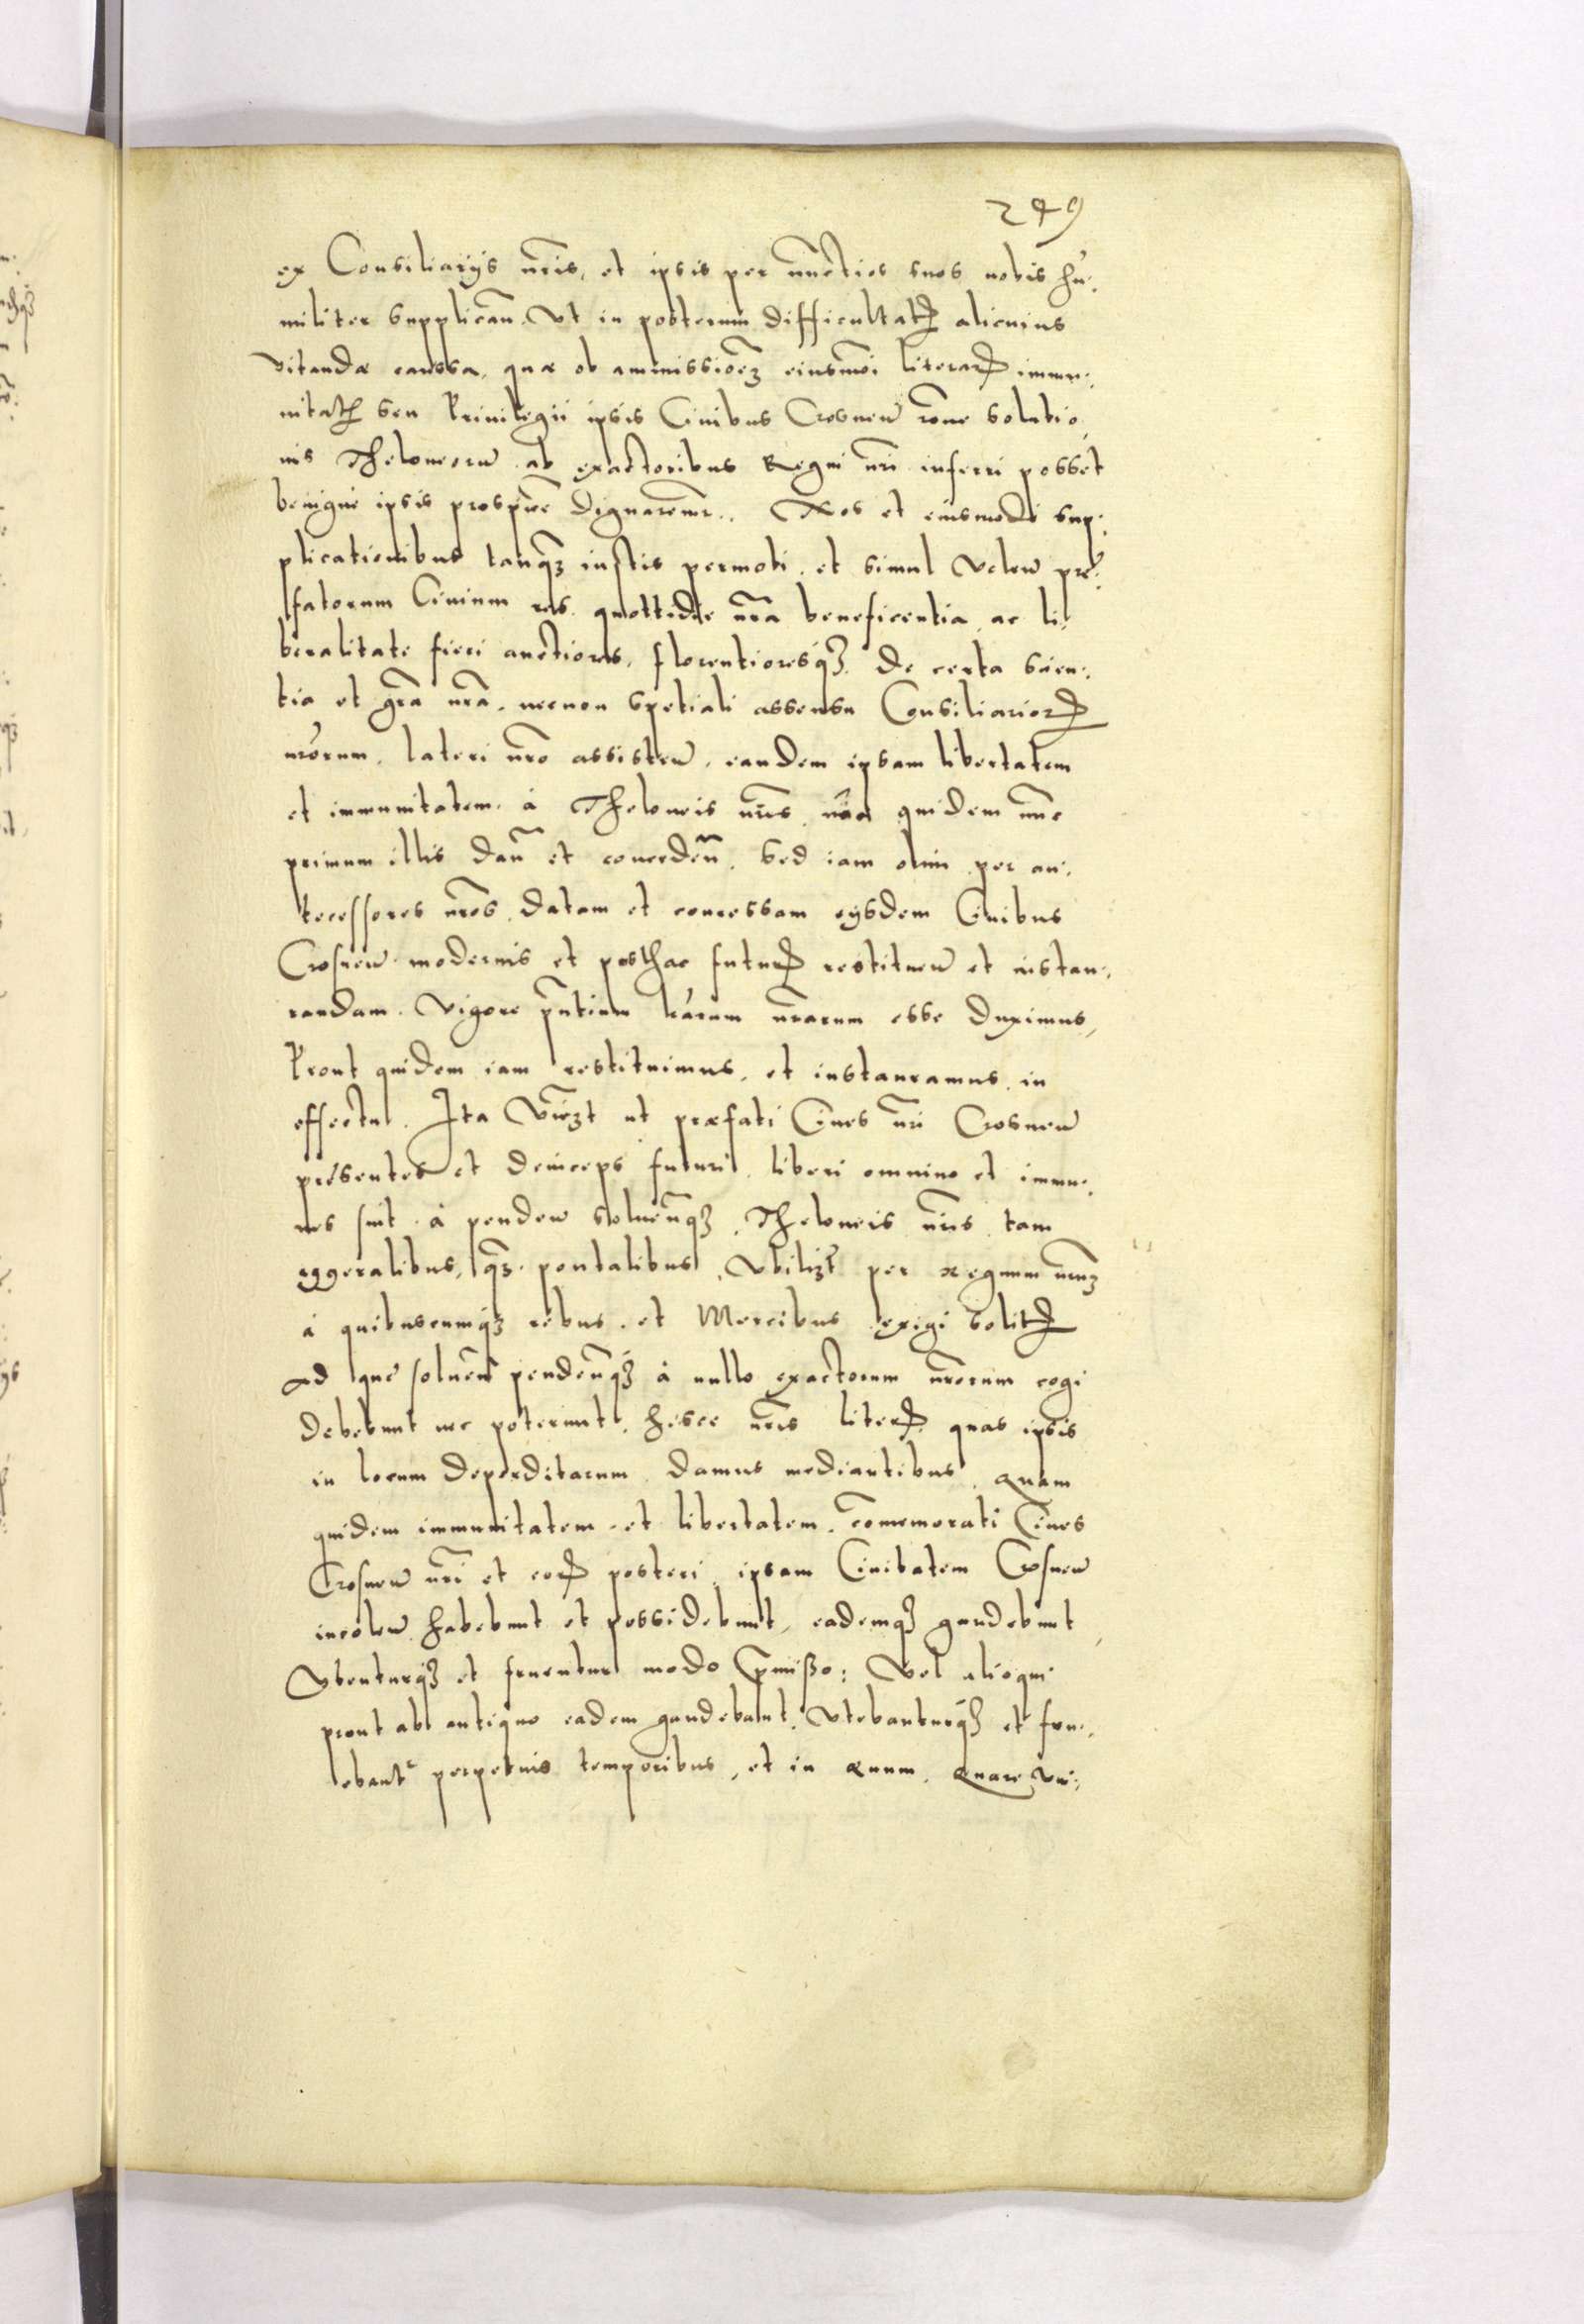 249
ex Consiliarijs nr̃is, et ipsis per nũctios suos nobis hu:
militer supplicañ. Ut in posterum difficultatꝭ alicuius
vitandæ caussa, quæ ob ammissioẽꝫ eiusmõi literarꝝ immu:
nitatꝭ seu Priuilegii ipsis Ciuibus Crosneñ rõne solutio,
nis Theloneorũ ab exactoribus Regni nr̃i inferri posset
benigne ipsis prospic̃e dignarem̃r. Nos et eiusmodi sup:
plicationibus tanqꝫ iustis permoti, et simul voleñ præ:
fatorum Ciuium res quottidie nr̃a beneficentia, ac li:
beralitate fieri auctiores, florentioresqꝫ. De certa scien:
tia et gr̃a nr̃a, necnon spetiali assensu Consiliariorꝝ
nr̃orum, lateri nr̃o assisteñ, eandem ipsam libertatem
et immunitatem á Theloneis nr̃is, nõn quidem nũc
primum illis dañ et concedeñ. Sed iam olim per an:
tecessores nr̃os datam et concessam eijsdem Ciuibus
Crosneñ modernis et posthac futurꝭ restitueñ et instau:
randam. Vigore pñtium lr̃arum nr̃arum esse duximus,
Prout quidem iam restituimus, et instauramus, in
effectu. Ita Vič̃ꝫt ut præfati Ciues nr̃i Crosneñ
præsentes et deinceps futuri, liberi omnino et immu:
nes sint á pendeñ solueñqꝫ, Theloneis nr̃is tam
aggeralibus, qꝫ pontalibus, vbilizt per regnum nr̃uꝫ
á quibuscumqꝫ rebus, et Mercibus exigi solitꝭ
Ad que solueñ pendeñqꝫ á nullo exactorum nr̃orum cogi
debebunt nec poterunt, hisce nr̃is literꝭ quas ipsis
in locum deperditarum damus mediantibus. Quam
quidem immunitatem et libertatem, com̃emorati Ciues
Crosneñ nr̃i et eorꝝ posteri, ipsam Ciuitatem Crosneñ
incoleñ habebunt et possidebunt, eademqꝫ gaudebunt,
Vtenturqꝫ et fruentur modo p̃mißo: Vel alioqui
prout ab antiquo eadem gaudebant, vtebanturqꝫ et fru:,
ebant͛ perpetuis temporibus, et in æuum. Quare vni:,